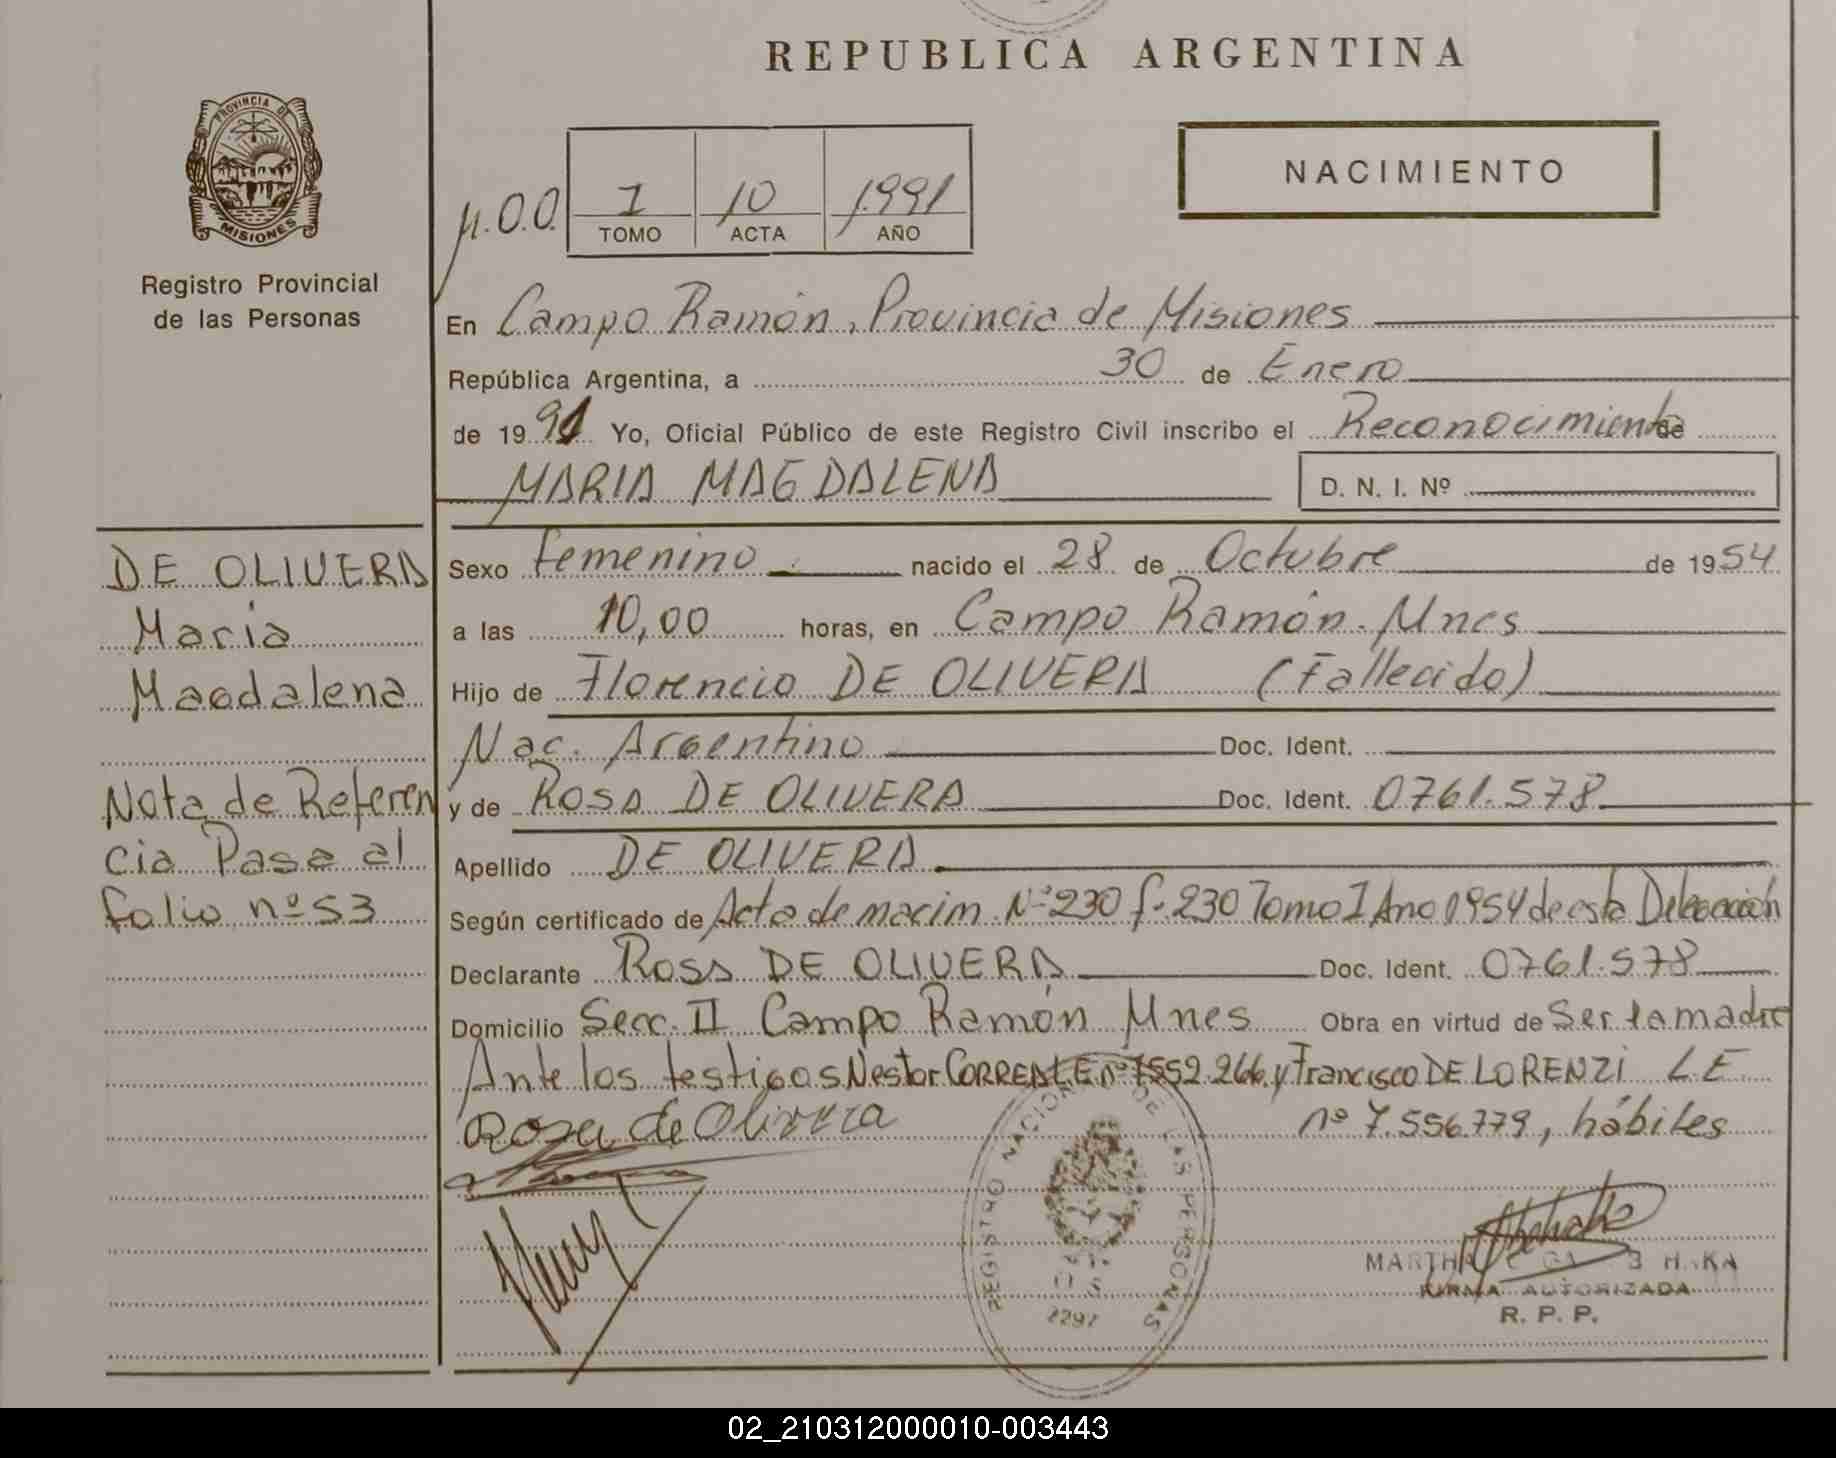 REPUBLICA ARGENTINA
PROVINCIA DE
MISIONES
Registro Provincial
de las Personas
NACIMIENTO
1 10 1991
TOMO ACTA AÑO
En Campo Ramón, Provincia de Misiones
República Argentina, a 30 de Enero
de 1991 Yo, Oficial Público de este Registro Civil inscribo el Reconocimiento de
MARIA MAGDALENA
D. N. I. Nº
DE OLIVERA
Maria
Magdalena
Nota de Referen
cia Pasa al
folio nº 53
Sexo Femenino nacido el 28 de Octubre de 1954
a las 10,00 horas, en Campo Ramón. Mnes
Hijo de Florencio DE OLIVERA (Fallecido)
Nac. Argentino Doc. Ident.
y de Rosa DE OLIVERA Doc. Ident. 0761.578
Apellido DE OLIVERA
Según certificado de Acta de nacim Nº 230 f. 230 Tomo I Año 1954 de esta Delegación
Declarante Rosa DE OLIVERA Doc. Ident. 0761.578
Domicilio Secc. II Campo Ramón Mnes Obra en virtud de Ser la madre
Ante los testigos Nestor CORREA LE nº 7552.266 y Francisco DE LORENZI LE
nº 7.556.779, hábiles
Rosa de Olivera
REGISTRO NACIONAL DE LAS PERSONAS
MARTHA
FIRMA AUTORIZADA
R. P. P.
02_210312000010-003443